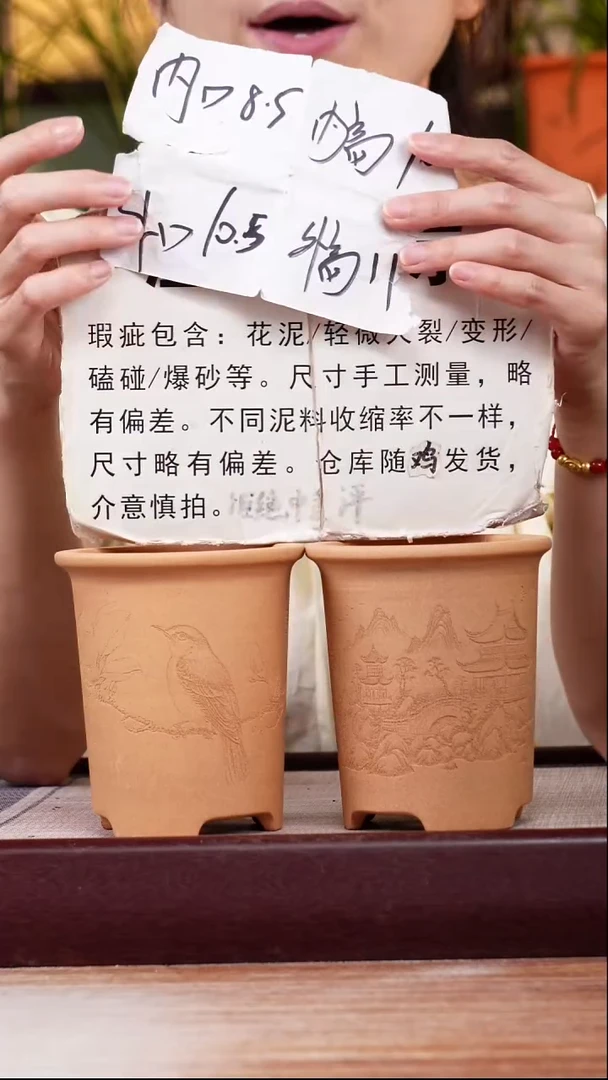 内口8.5 内高1
外口10.5 外高11
瑕疵包含：花泥/轻微火裂/变形/
磕碰/爆砂等。尺寸手工测量，略
有偏差。不同泥料收缩率不一样，
尺寸略有偏差。仓库随鸡发货，
介意慎拍。